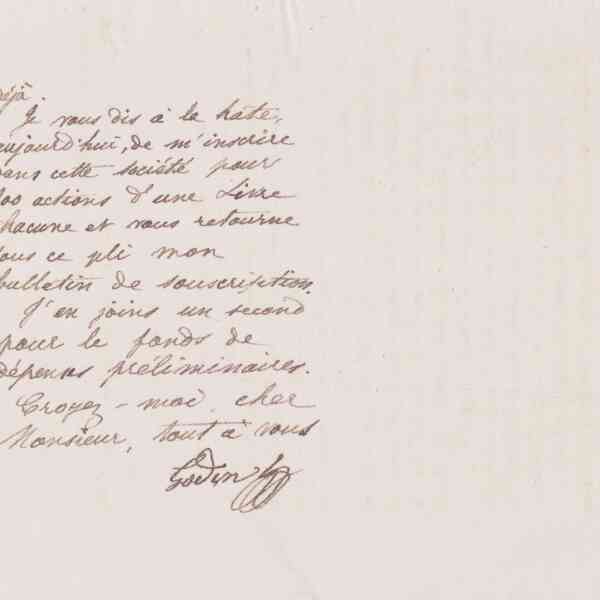 déjà.
Je vous dis à la hâte,
aujourd'hui, de m'inscrire
dans cette société pour
100 actions d'une Livre
chacune et vous retourne
sous ce pli mon
bulletin de souscription.
J'en joins un second
pour le fonds de
dépenses préliminaires.
Croyez-moi, cher
Monsieur, tout à vous
Godin